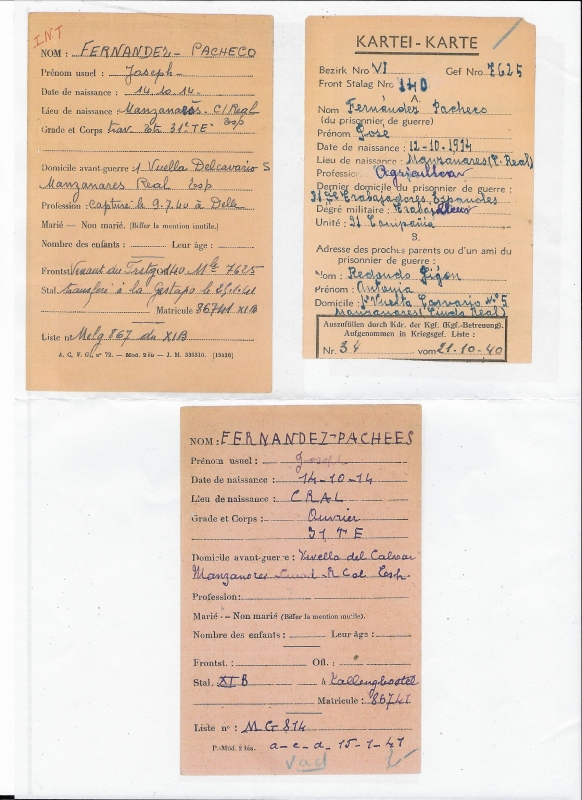 I.N.T
NOM : FERNANDEZ - PACHECO
Prénom usuel : Joseph
Date de naissance : 14.10.14.
Lieu de naissance : Manzanarès. C/Real
Esp
Grade et Corps : trav. Etr 31° TE
Domicile avant-guerre : 1 Vuella Delcavario 5
Manzanares Real Esp
Profession : Capturé le 9.7.40 à Delle
Marié — Non marié. (Biffer la mention inutile.)
Nombre des enfants : Leur âge :
Frontst. Venant du Frstg 140 Mle 7625
Stal. transféré à la Gestapo le 25.1.41
Matricule 86741 XIB
Liste n° Melg 867 du XIB
A. C. P. G., n° 72. — Mod. 2 bis — J. M. 530310. [15436]
KARTEI - KARTE
Bezirk Nro VI Gef Nro 7625
Front Stalag Nro 140
A.
Nom Fernández Pacheco
(du prisonnier de guerre)
Prénom José
Date de naissance : 12-10-1914
Lieu de naissance : Manzanares (C. Real)
Profession Agricultor
Dernier domicile du prisonnier de guerre :
31 Cie Trabajadores Españoles
Degré militaire : Trabajador
Unité : 31 Compañia
B.
Adresse des proches parents ou d'un ami du
prisonnier de guerre :
Nom : Redondo Gigón
Prénom : Antonia
Domicile : 1ª Vuelta Carvario nº 5
Manzanares (Ciuda Real)
Auszufüllen durch Kdr. der Kgf. (Kgf.-Betreuung).
Aufgenommen in Kriegsgef. Liste :
Nr. 34 vom 21-10-40
NOM : FERNANDEZ-PACHEES
Prénom usuel : José
Date de naissance : 14-10-14
Lieu de naissance : CRAL
Grade et Corps : Ouvrier
31 TE
Domicile avant-guerre : Vivella del Calvar
Manzanores Ciuad R Col Esp.
Profession :
Marié - Non marié (Biffer la mention inutile.)
Nombre des enfants : Leur âge :
Frontst. Ofl. :
Stal. XI B à Fallengbostel
Matricule : 86741
Liste n° : MG 814
P.-Mod. 2 bis. a-c-d- 15-1-41